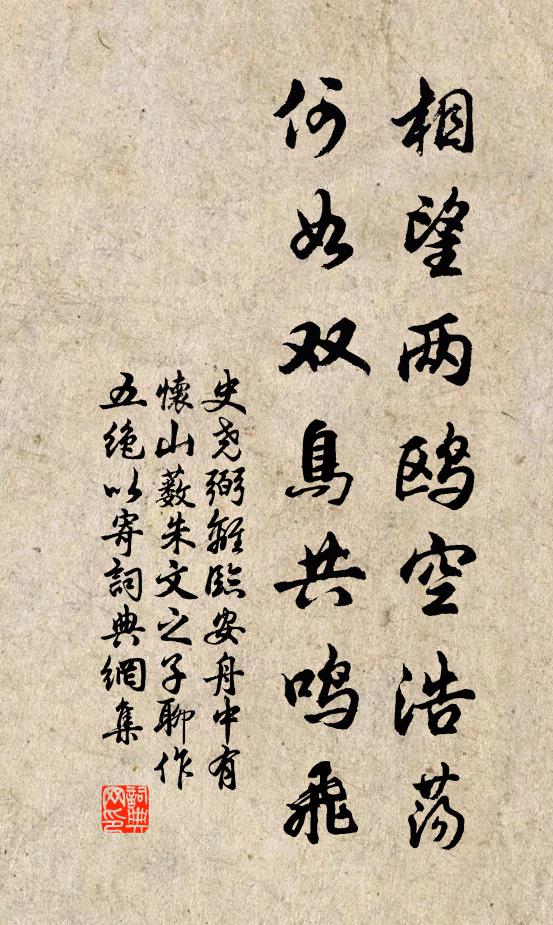 相望两鸥空浩荡
何如双鳥共鸣飛
史尧弼離臨安舟中有
懷山薮朱文之子聊作
五绝以寄詞典網集
詞典网印